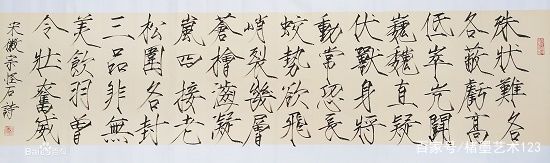 殊狀難名
各蔽虧高
低崒屼鬭
巍巍直疑
伏獸身將
動常恐長
蛟勢欲飛
峭裂幾層
蒼檜凝
嵐四接老
松圍各封
三品非無
美飲羽曾
令壯奮威
宋徽宗怪石詩
Baidu百科
百家号/楮墨艺术123